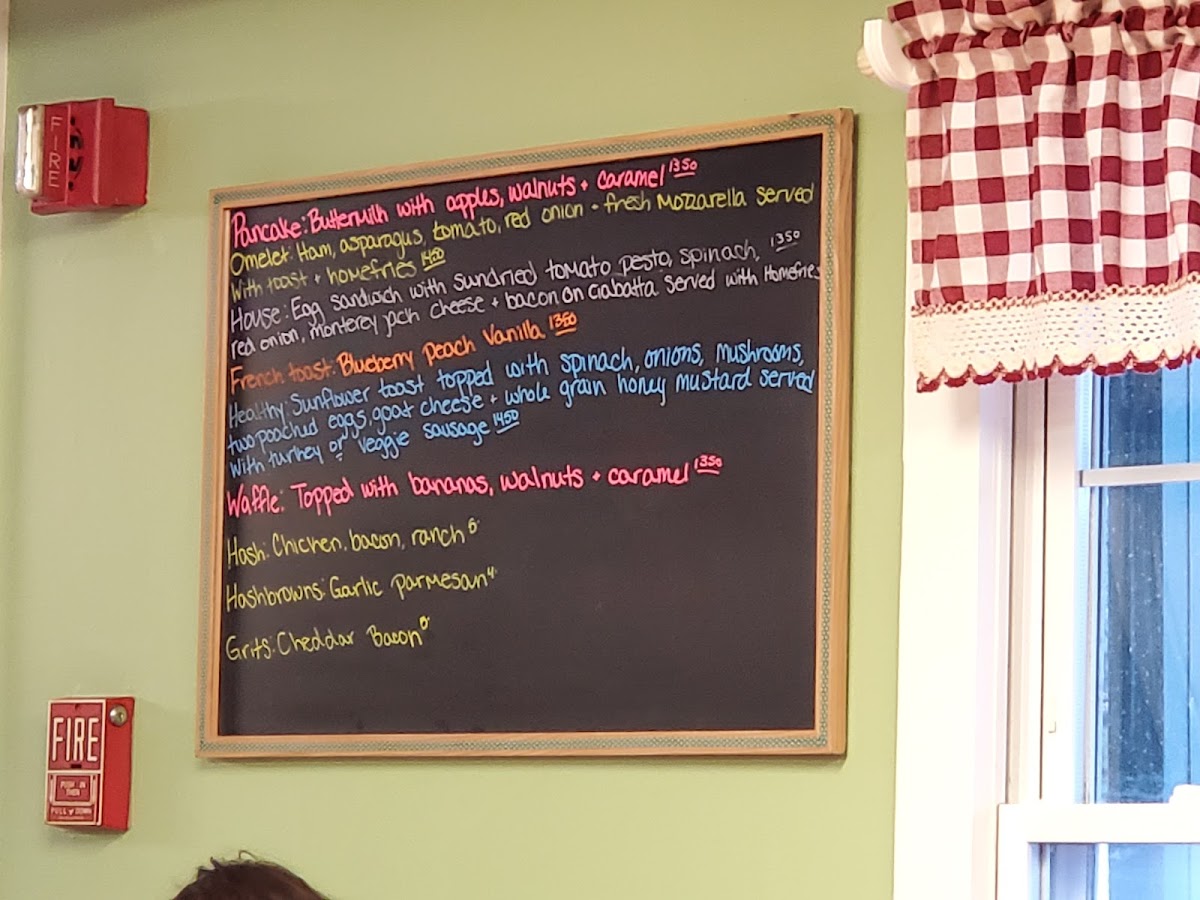 FIRE
Pancake: Buttermilk with apples, walnuts + caramel 1350
Omelet: Ham, asparagus, tomato, red onion + fresh mozzarella served
with toast + homefries 1400
House: Egg sandwich with sundried tomato pesto, spinach, 1350
red onion, monterey jack cheese + bacon on ciabatta served with Homefries
French toast: Blueberry Peach Vanilla 1350
Healthy: Sunflower toast topped with spinach, onions, mushrooms,
two pooched eggs, goat cheese + whole grain honey mustard served
with turkey or veggie sausage 1450
Waffle: Topped with bananas, walnuts + caramel 1350
Hash: Chicken, bacon, ranch 6
Hashbrowns: Garlic parmesan 4
Grits: Cheddar Bacon
FIRE
PUSH IN
THEN
PULL DOWN